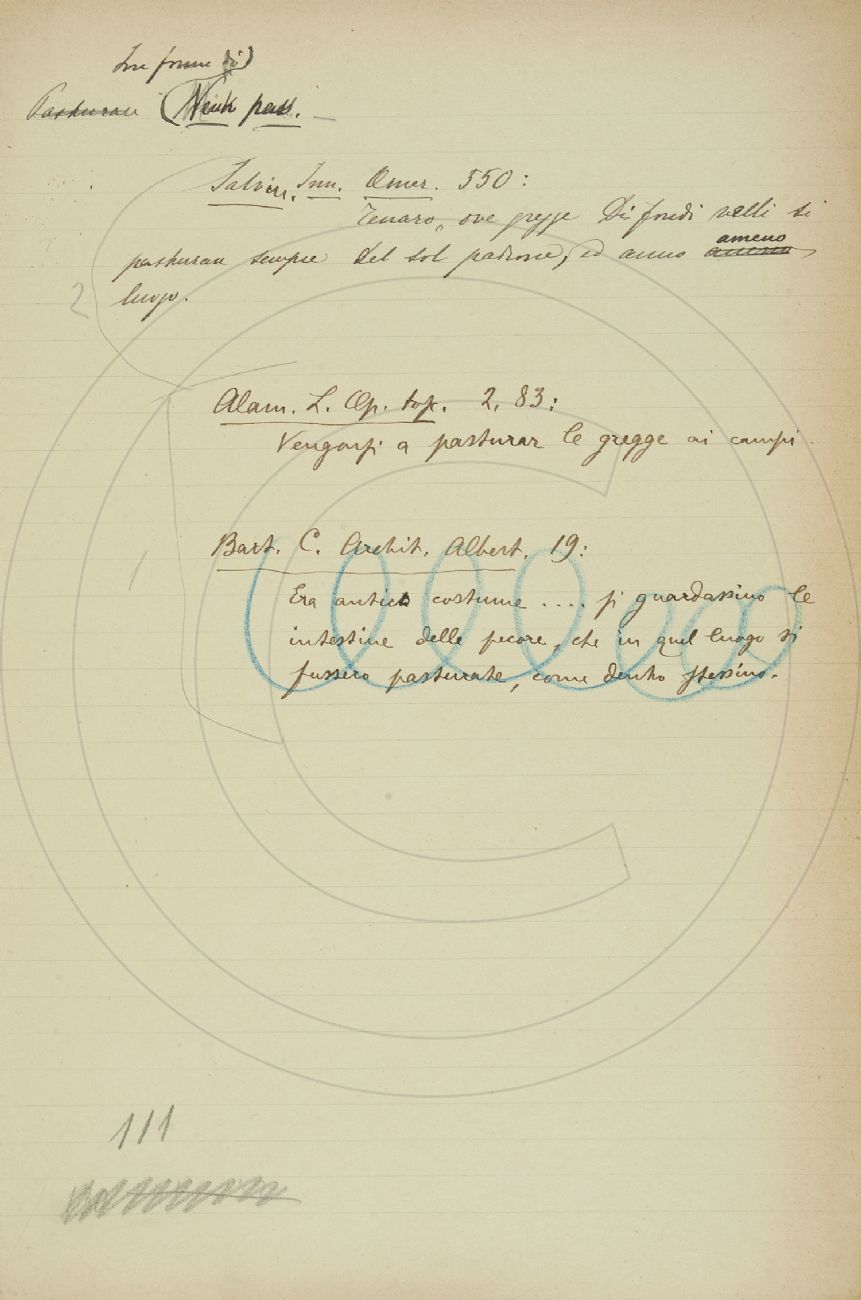 In forma di
Pasturare (Neutr. pass.
Salvin. Inn. Omer. 550:
Tenaro, ove gregge Di fondi velli si
pasturan sempre del sol padrone, ed anno ameno
luogo.
2
Alam. L. Op. tosc. 2, 83:
Vengonsi a pasturar le gregge ai campi.
Bart. C. Archit. Albert. 19:
1
Era antico costume .... si guardassino le
intestine delle pecore, che in quel luogo si
fussero pasturate, come dentro stessino.
111